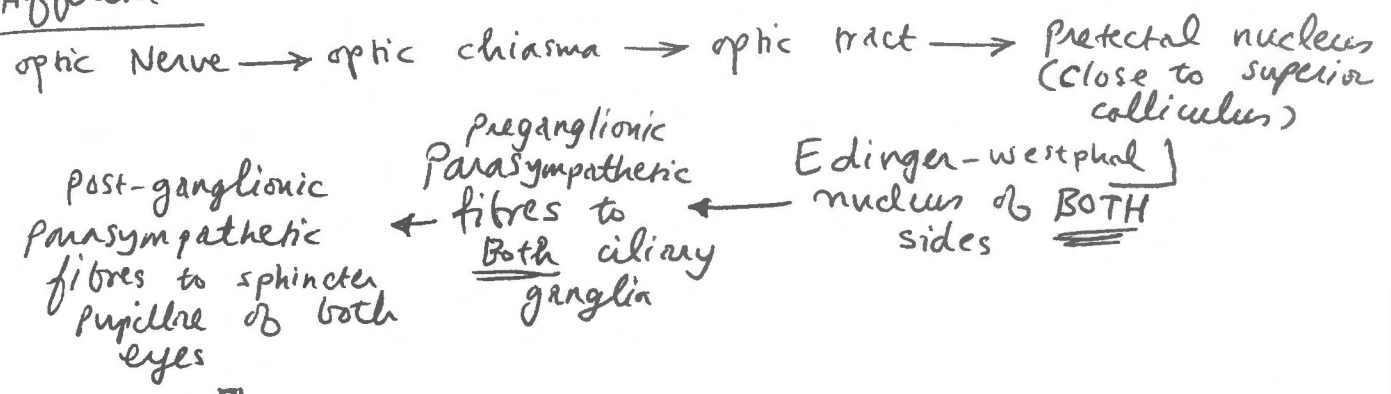 Afferent
optic Nerve → optic chiasma → optic tract → Pretectal nucleus
(close to superior
colliculus)
Edinger-westphal
nucleus of BOTH
sides
preganglionic
Parasympathetic
fibres to
Both ciliary
ganglia
post-ganglionic
parasympathetic
fibres to sphincter
pupillae of both
eyes